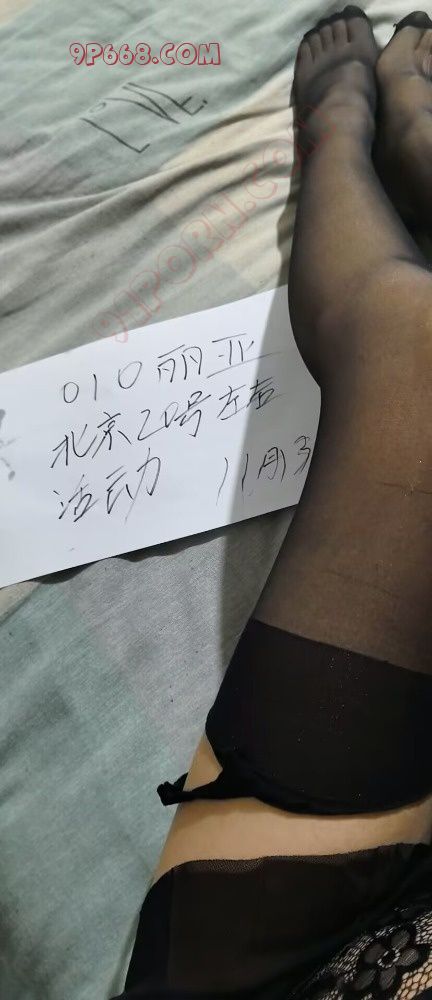 9P668.COM
L'VE
91PORN.COM
010丽亚
北京20号左右
活动 11月13